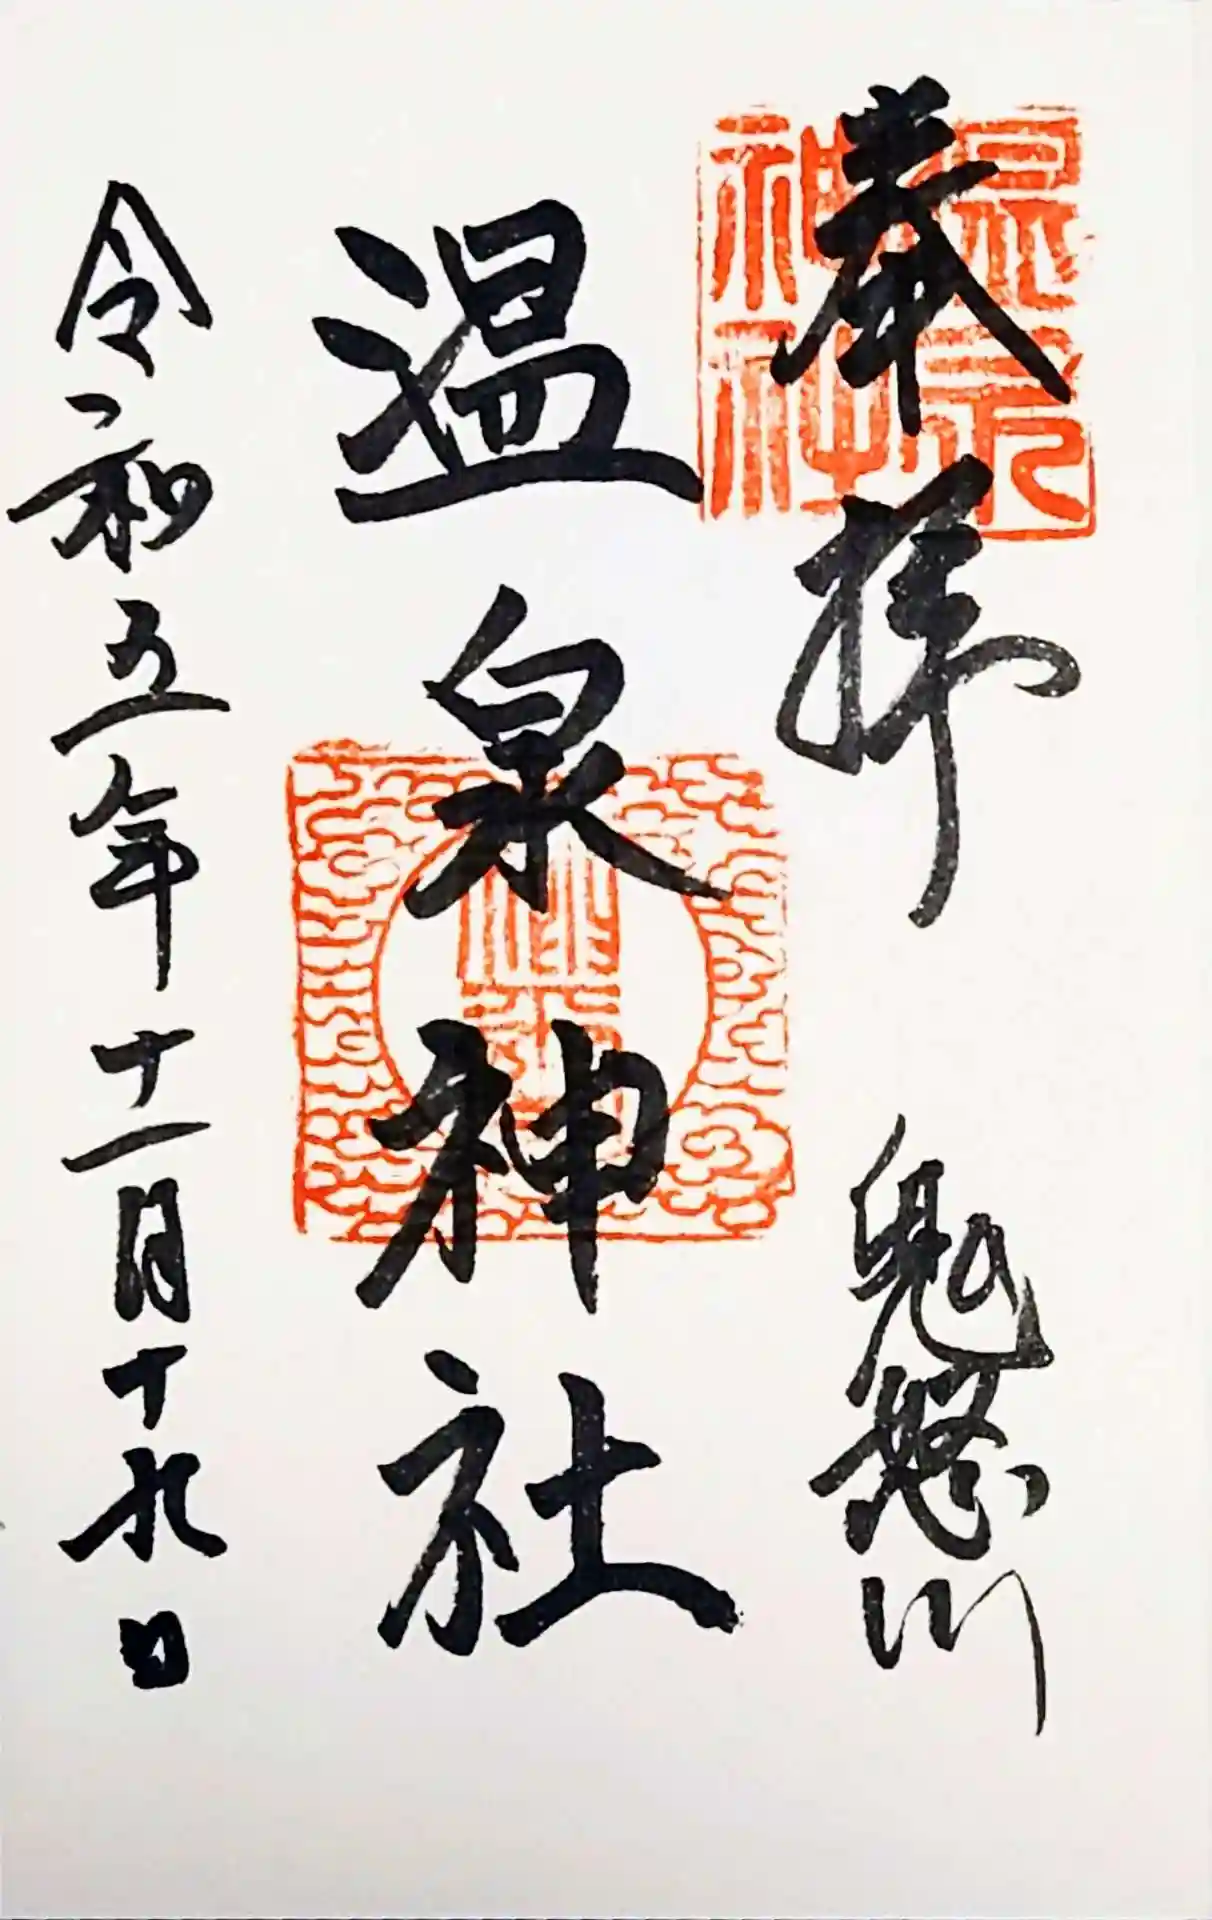 奉拝 鬼怒川
温泉神社
令和五年十一月十九日
温泉神社